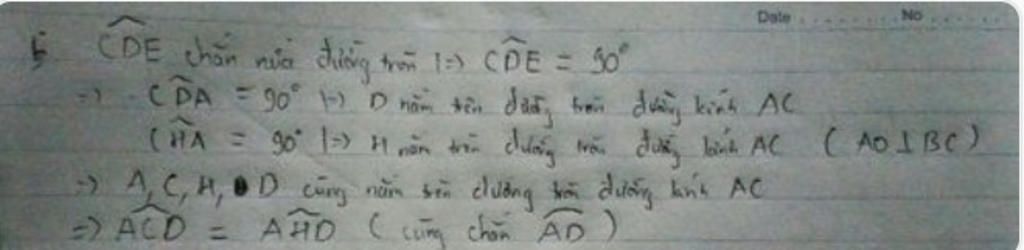 Date ........ No ......
b, \widehat{CDE} chắn nửa đường tròn |=> \widehat{CDE} = 90°
=> \widehat{CDA} = 90° |=> D nằm trên đường tròn đường kính AC
\widehat{CHA} = 90° |=> H nằm trên đường tròn đường kính AC (AO ⊥ BC)
=> A, C, H, D cùng nằm trên đường tròn đường kính AC
=> \widehat{ACD} = \widehat{AHD} (cùng chắn \widehat{AD})